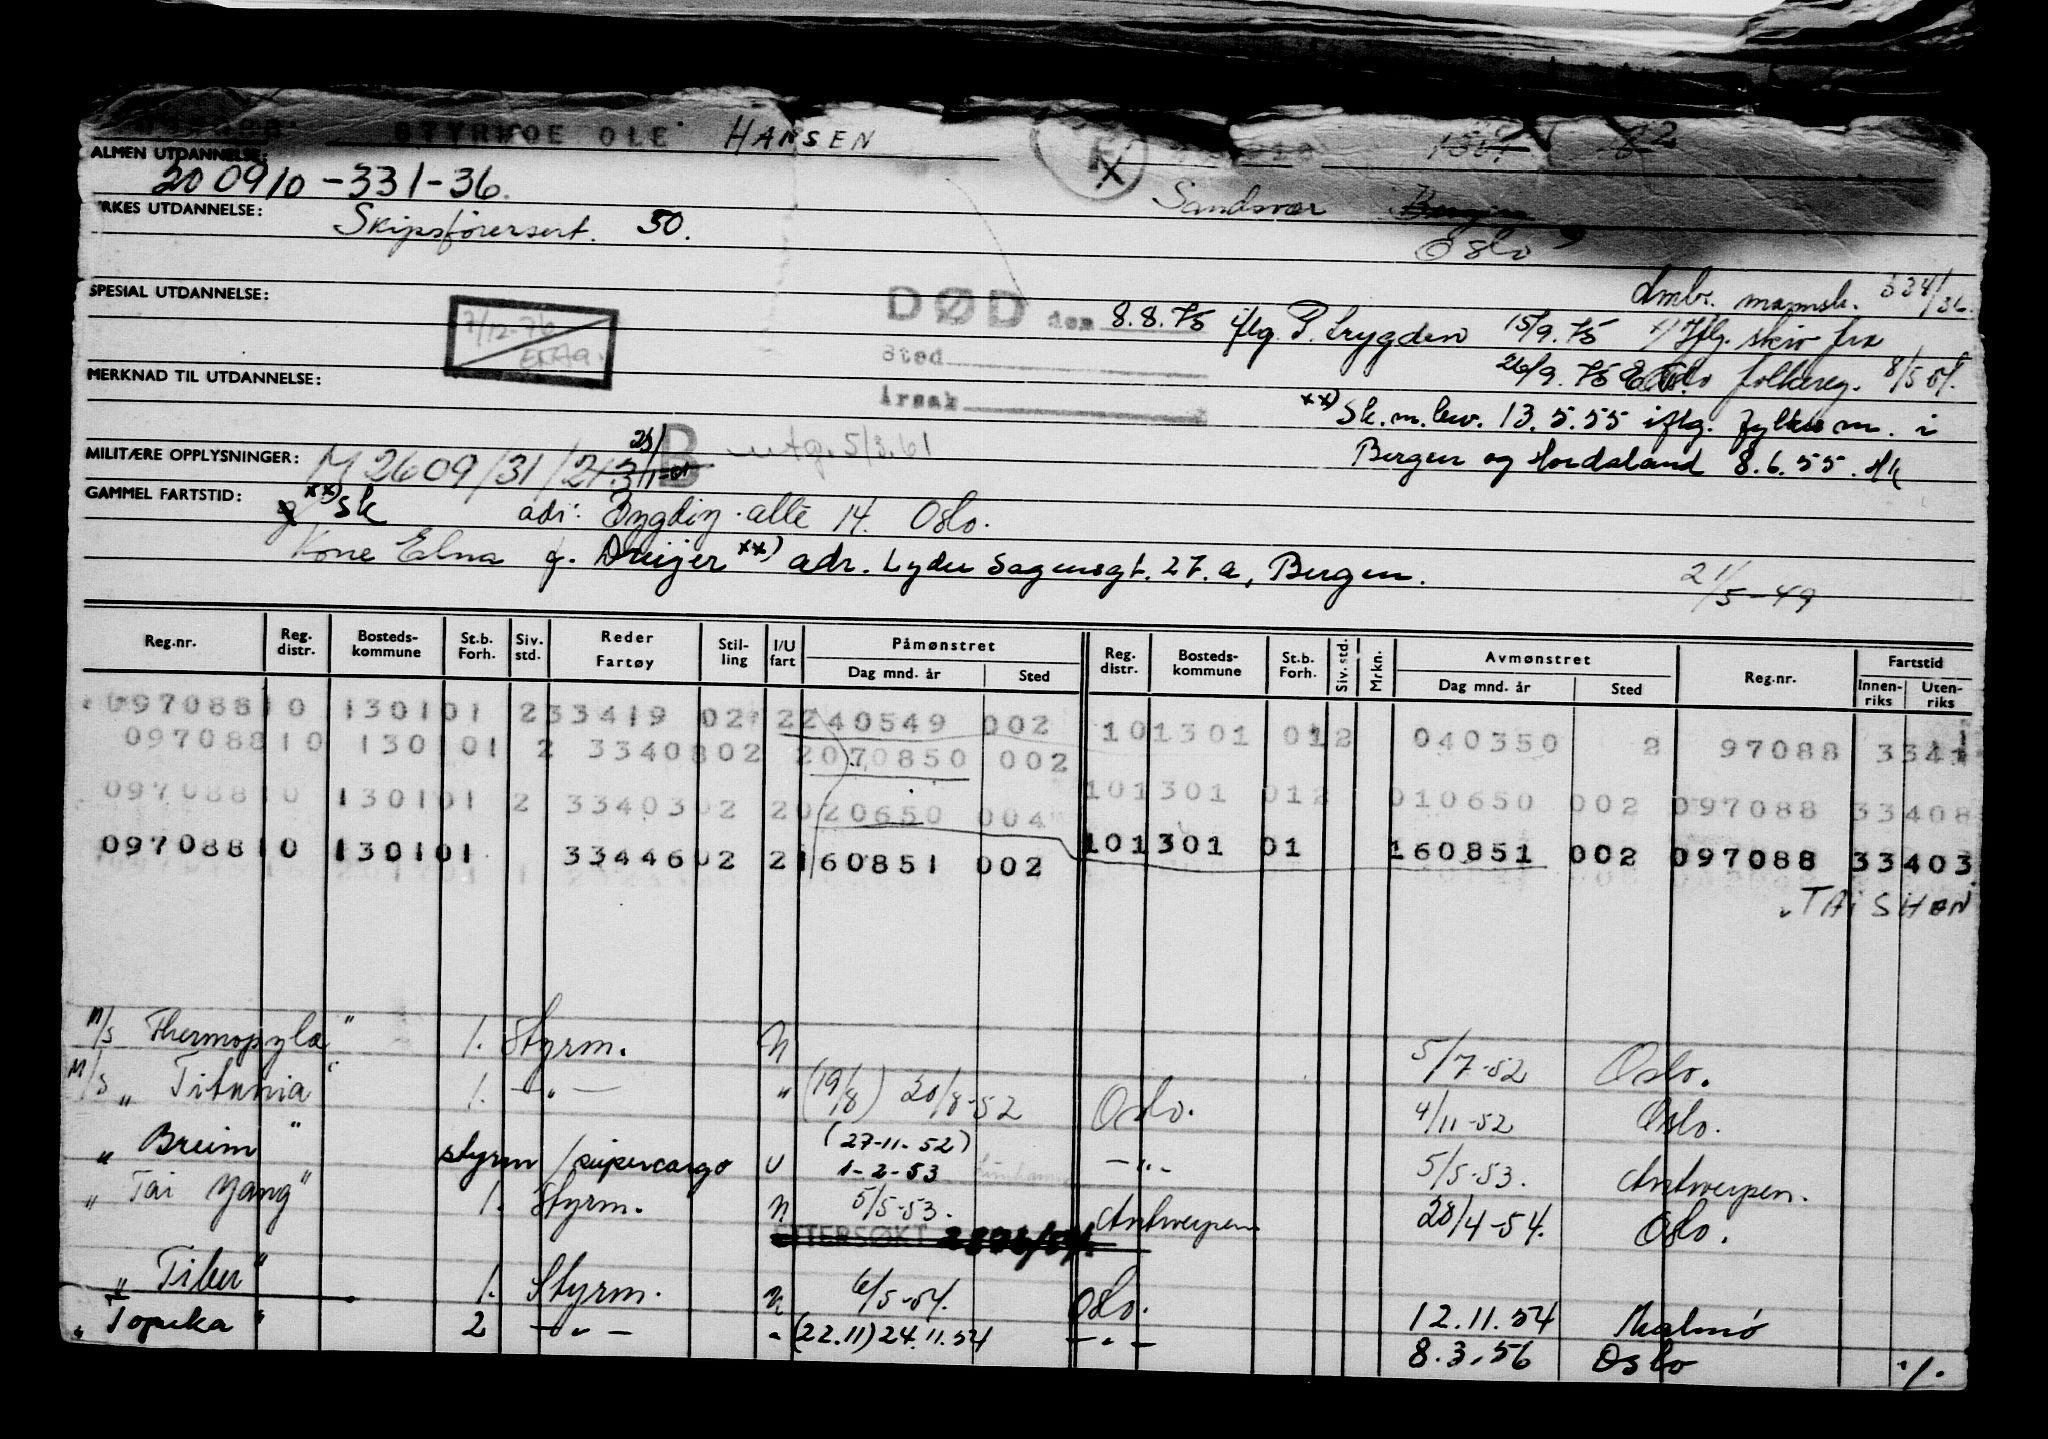 STYRKOE OLE HANSEN
ALMEN UTDANNELSE:
200910-331-36.
Sandsvær
YRKES UTDANNELSE:
Skipsførersert. 50.
Oslo
Ambr. mannsk. 334/36.
SPESIAL UTDANNELSE:
7/12-76
DØD den 8.8.75 iflg. P. trygden 15/9.75 x) Iflg. skriv fra
Sted
26/9.75 Oslo folkereg. 8/5 54.
MERKNAD TIL UTDANNELSE:
Årsak
xx) Sk.m.bev. 13.5.55 iflg. Fylkesm. i
Bergen og Hordaland 8.6.55.
MILITÆRE OPPLYSNINGER: M 2609/31/
B utg. 5/3.61
GAMMEL FARTSTID:
xx) sk adr: Bygdøy alle 14. Oslo.
Kone Edna f. Dreijer xx) adr. Lyder Sagensgt. 27.a, Bergen.
21/5-49
Reg.nr. Reg. distr. Bosteds-kommune St.b. Forh. Siv. std. Reder Fartøy Stil-ling I/U fart Påmønstret Dag mnd. år Sted Reg. distr. Bosteds-kommune St.b. Forh. Siv. std. Mrkn. Avmønstret Dag mnd. år Sted Reg.nr. Fartstid Innen-riks Uten-riks
09708810 130101 233419 02 2240549 002 101301 012 040350 2 97088 3341
09708810 130101 2 3340802 2070850 002
09708810 130101 2 3340302 2020650 004 101301 012 010650 002 097088 33408
09708810 130101 3344602 2160851 002 101301 01 160851 002 097088 33403
TAI SHAN
M/S Thermopylæ" 1. Styrm. U 5/7-52 Oslo.
M/S " Titania" 1. -"- " (19/8) 20/8-52 Oslo. 4/11-52 Oslo.
" Breim" styrm/supercargo U (27-11-52) 1-2-53 -"- 5/5-53. Antwerpen.
" Tai Yang" 1. Styrm. U 5/5-53. Antwerpen 28/4-54. Oslo.
ETTERSØKT
" Tiber" 1. Styrm. U 6/5-54. Oslo. 12.11.54 Malmø
" Topeka" 2 -"- " (22.11) 24.11.54 -"- 8.3.56 Oslo ./.